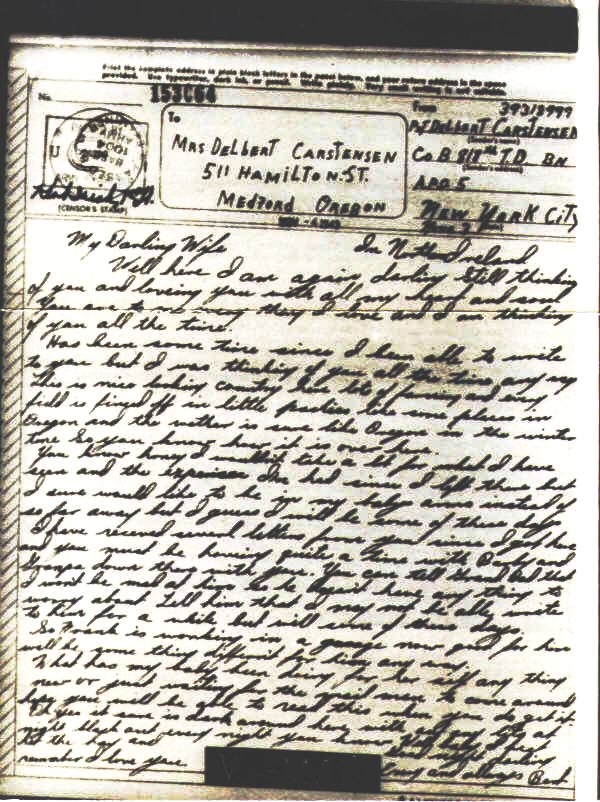 Print the complete address in plain block letters in the panel below, and your return address in the space
provided. Use typewriter, dark ink, or pencil. Write plainly. Very small writing is not suitable.
No.
153C64
To
From
39313999
MRS DELBERT CARSTENSEN
511 HAMILTON ST.
MEDFORD OREGON
DELBERT CARSTENSEN
CO. B. T.D. BN.
APO. 5
NEW YORK CITY
(CENSOR'S STAMP)
My Darling Wife
In Northern Ireland
Well here I am again darling still thinking
of you and loving you with all my heart and soul
You are to me my they I love and I am thinking
of you all the time.
Has been some time since I been able to write
to you but I was thinking of you all the time any way
This is nice looking country here lot of farming and every
field is fenced off in little like some places in
Oregon and the wether is sure like Oregon in the winter
time So you know how it is over here.
You know hony I wouldnt take a lot for what I have
seen and the Ive had since I left there but
I sure would like to be in my baby arms instead of
so far away but I guess I will be some of these days
I have received several letters from you since I got here
you must be having quite a time with and
Granpa down there with you. You can tell that
I wont be mad at him so he hasnt have any thing to
worry about Tell him that I may not be able write
to him for a while but will some of these days.
So Frank is working in a garage now good for him
will be some thing different for him any way.
What has my baby been doing for her self any thing
new or just waiting for the mail man to come around
hope you will be able to read this when you do get it.
Oh yes it sure is dark around here with out any lights at
night black and every night you
Good night darling
remember I love you
and always